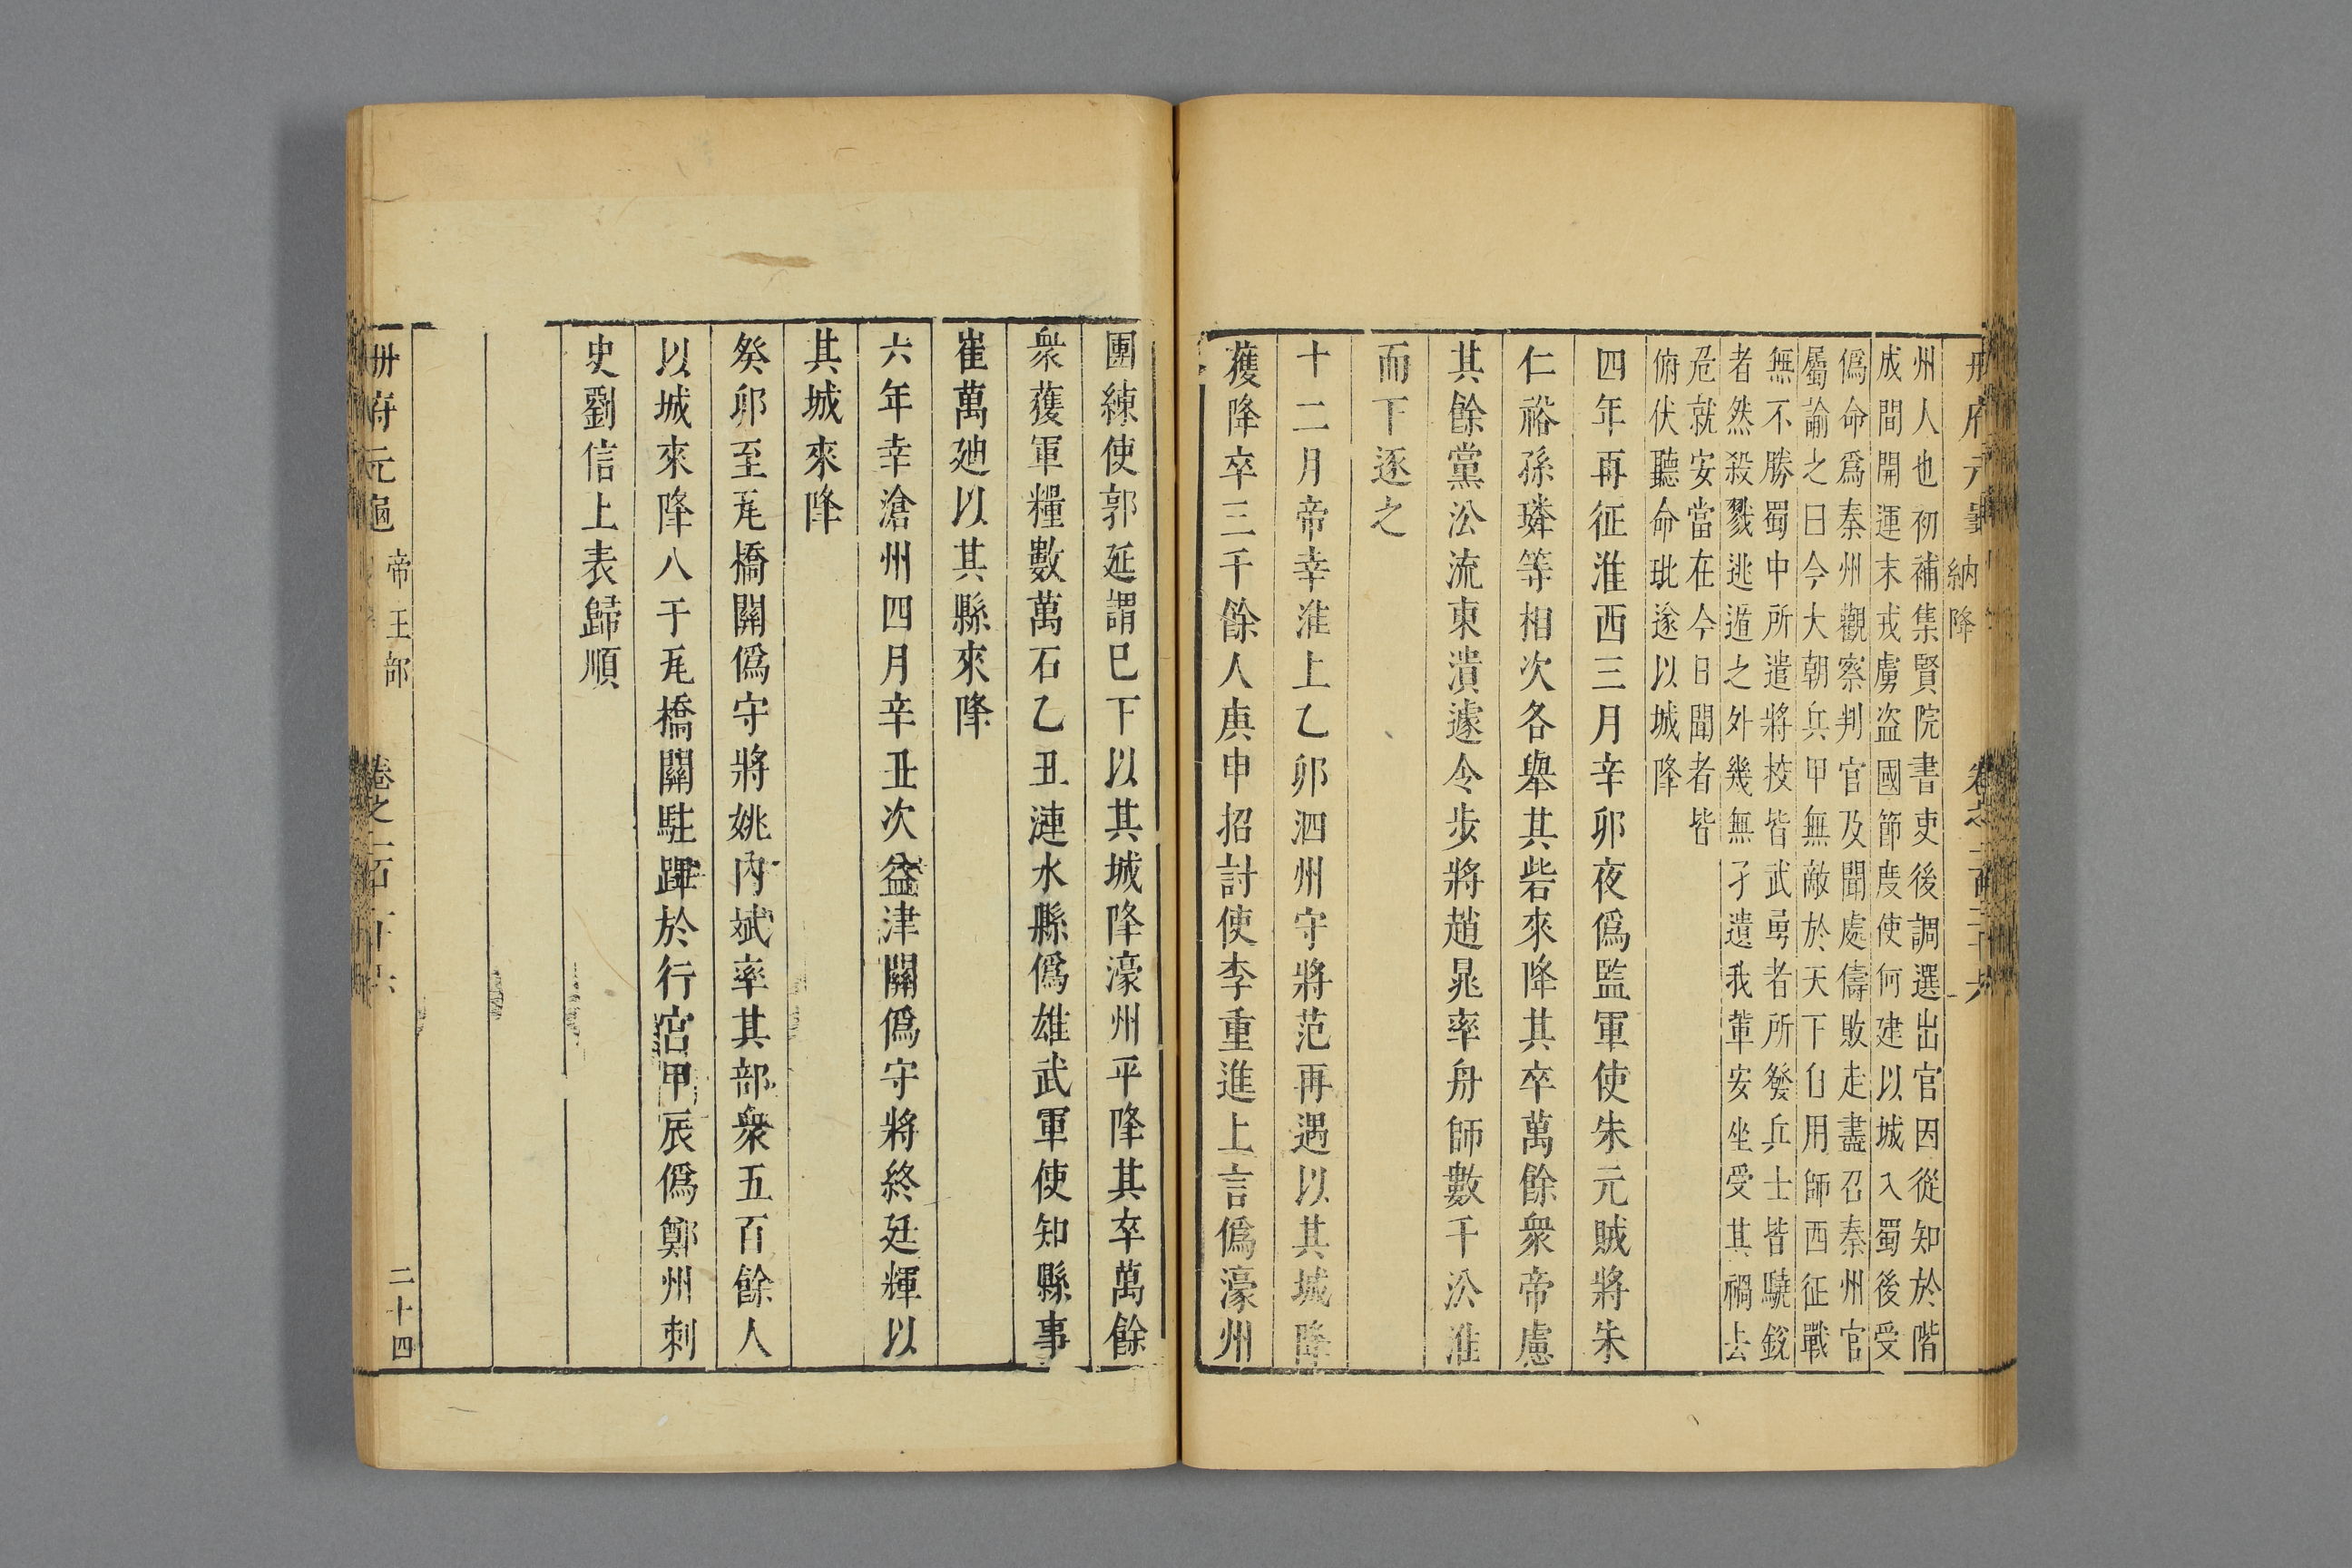 冊府元龜 納降 卷之一百二十六
州人也初補集賢院書吏後調選出官因從知於階
成間開運末戎虜盜國節度使何建以城入蜀後受
僞命爲秦州觀察判官及聞處儔敗走盡召秦州官
屬諭之曰今大朝兵甲無敵於天下自用師西征戰
無不勝蜀中所遣將校皆武勇者所發兵士皆驍銳
者然殺戮逃遁之外幾無孑遺我輩安坐受其禍去
危就安當在今日聞者皆
俯伏聽命玭遂以城降
四年再征淮西三月辛卯夜僞監軍使朱元賊將朱
仁裕孫璘等相次各舉其砦來降其卒萬餘衆帝慮
其餘黨㳂流東潰遽令步將趙晁率舟師數千㳂淮
而下逐之
十二月帝幸淮上乙卯泗州守將范再遇以其城降
獲降卒三千餘人庚申招討使李重進上言僞濠州
團練使郭延謂巳下以其城降濠州平降其卒萬餘
衆獲軍糧數萬石乙丑漣水縣僞雄武軍使知縣事
崔萬廸以其縣來降
六年幸滄州四月辛丑次益津關僞守將終廷輝以
其城來降
癸卯至瓦橋關僞守將姚內斌率其部衆五百餘人
以城來降八于瓦橋關駐蹕於行宮甲辰僞鄭州刺
史劉信上表歸順
冊府元龜 帝王部 卷之一百二十六 二十四